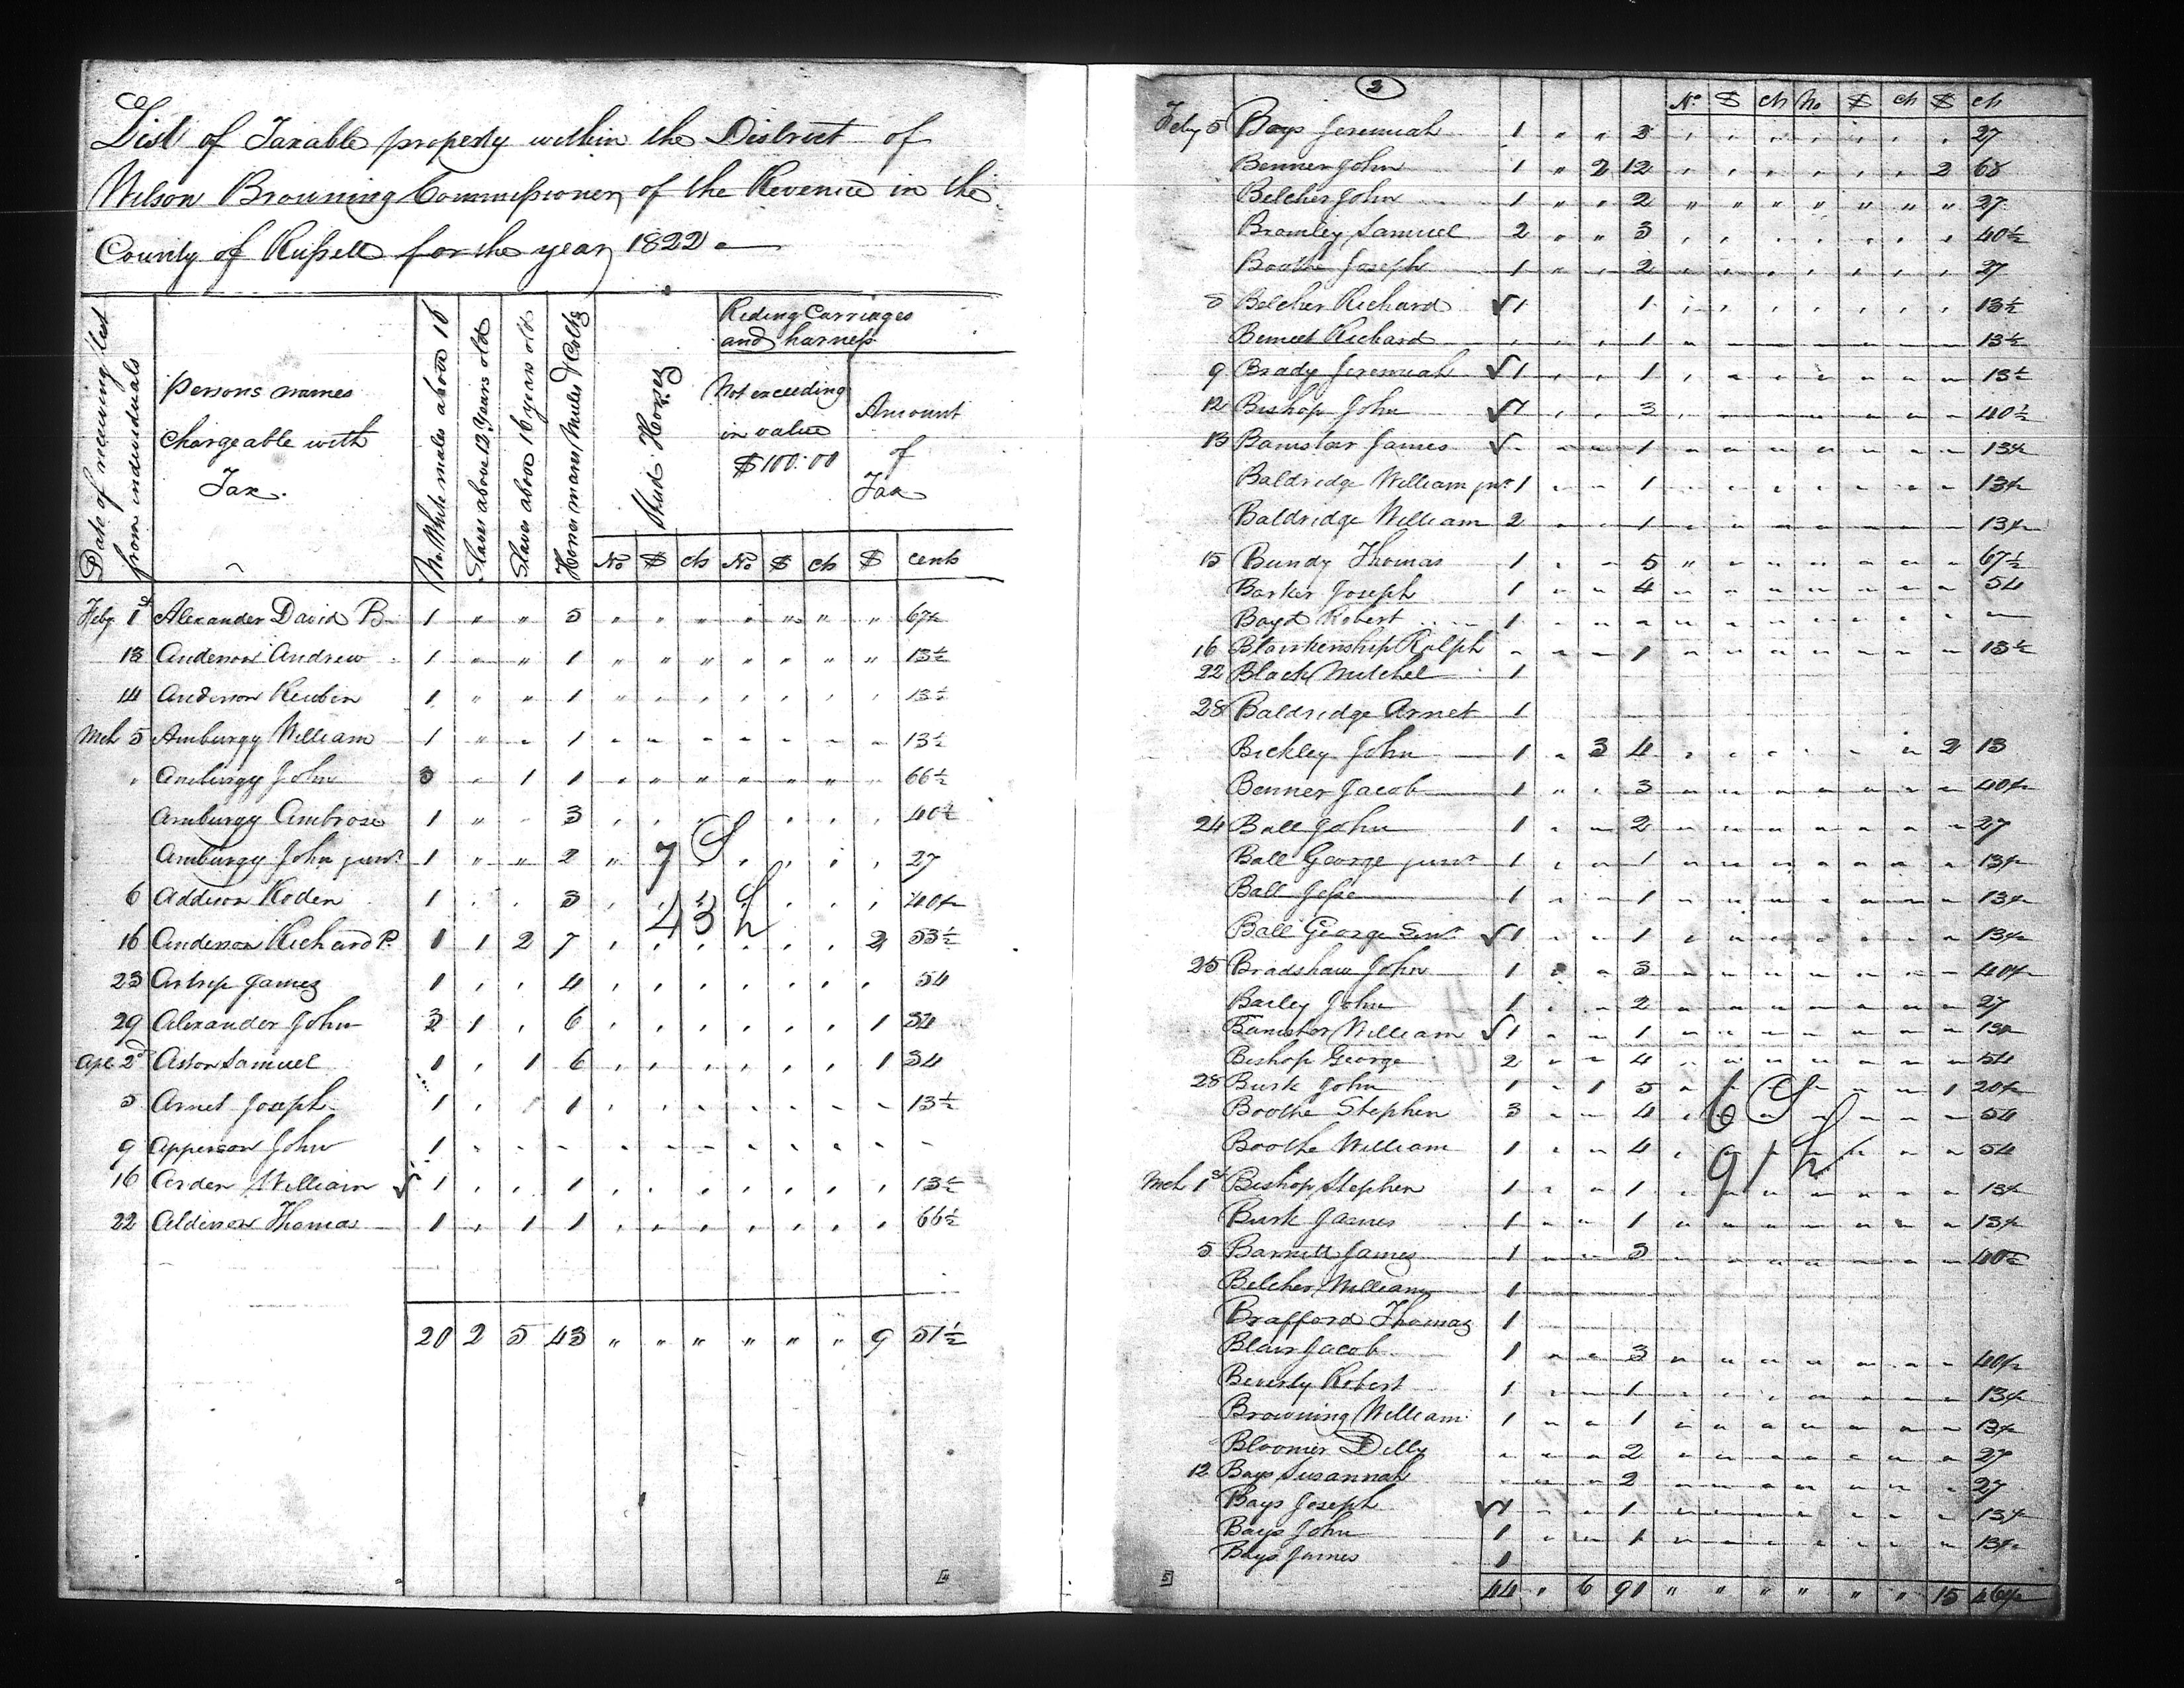 List of Taxable property within the District of
Wilson Browning Commissioner of the Revenue in the
County of Russell for the year 1822
Date of receiving list from individuals
Persons names chargeable with Tax.
No. White males above 16
Slaves above 12 Years old
Slaves above 16 years old
Horses mares Mules & Colts
Stud Horses
Riding Carriages and harness
Not exceeding in value $100:00
Amount of Tax
No $ cts No $ cts $ cents
Feby 1st Alexander David B 1 " " 5 " " " " " " " 67½
13 Anderson Andrew 1 " " 1 " " " " " " " 13½
14 Anderson Reubin 1 " " 1 " " " " " " " 13½
Mch 5 Amburgy William 1 " " 1 " " " " " " " 13½
" Amburgy John 3 " 1 1 " " " " " " " 66½
Amburgy Ambrose 1 " " 3 " " " " " " " 40½
Amburgy John junr 1 " " 2 " " " " " " " 27
7 S
6 Addison Roden 1 " " 3 " " " " " " " 40½
43 h
16 Anderson Richard P. 1 1 2 7 " " " " " " 2 53½
23 Artrip James 1 " " 4 " " " " " " " 54
29 Alexander John 3 1 " 6 " " " " " " 1 34
Apl 2d Aston Samuel 1 " 1 6 " " " " " " 1 34
5 Arnet Joseph 1 " " 1 " " " " " " " 13½
9 Apperson John 1 " " " " " " " " " " "
16 Arden William √ 1 " " 1 " " " " " " " 13½
22 Aldison Thomas 1 " 1 1 " " " " " " " 66½
20 2 5 43 " " " " " " 9 51½
4
2
No $ cts No $ cts $ cts
Feby 5 Bays Jeremiah 1 " " 2 " " " " " " " 27
Benner John 1 " 2 12 " " " " " " 2 68
Belcher John 1 " " 2 " " " " " " " 27
Bromley Samuel 2 " " 3 " " " " " " " 40½
Boothe Joseph 1 " " 2 " " " " " " " 27
8 Belcher Richard √ 1 1 " " " " " " " 13½
Bennet Richard " " " 1 " " " " " " " 13½
9 Brady Jeremiah √ 1 " " 1 " " " " " " " 13½
12 Bishop John √ 1 " " 3 " " " " " " " 40½
13 Banister James √ " " 1 " " " " " " " 13½
Baldridge William junr 1 " " 1 " " " " " " " 13½
Baldridge William 2 " " 1 " " " " " " " 13½
15 Bundy Thomas 1 " " 5 " " " " " " " 67½
Barker Joseph 1 " " 4 " " " " " " " 54
Boyd Robert 1 " " " " " " " " " " "
16 Blankenship Ralph " " " 1 " " " " " " " 13½
22 Black Mitchel 1
28 Baldridge Arnet 1
Bickley John 1 " 3 4 " " " " " " 2 13
Benner Jacob 1 " " 3 " " " " " " " 40½
24 Ball John 1 " " 2 " " " " " " " 27
Ball George junr 1 " " 1 " " " " " " " 13½
Ball Jesse 1 " " 1 " " " " " " " 13½
Ball George Senr √ 1 " " 1 " " " " " " " 13½
25 Bradshaw John 1 " " 3 " " " " " " " 40½
Bailey John 1 " " 2 " " " " " " " 27
Banister William √ 1 " " 1 " " " " " " " 13½
Bishop George 2 " " 4 " " " " " " " 54
28 Burk John 1 " 1 5 " " " " " " 1 20½
6 S
Boothe Stephen 3 " " 4 " " " " " " " 54
Boothe William 1 " " 4 " " " " " " " 54
91 h
Mch 1st Bishop Stephen 1 " " 1 " " " " " " " 13½
Burk James 1 " " 1 " " " " " " " 13½
5 Barnett James 1 " " 3 " " " " " " " 40½
Belcher William 1
Brafford Thomas 1
Blair Jacob 1 " " 3 " " " " " " " 40½
Beverly Robert 1 " " 1 " " " " " " " 13½
Browning William 1 " " 1 " " " " " " " 13½
Bloomer Dilly " " " 2 " " " " " " " 27
12 Bays Susannah " " " 2 " " " " " " " 27
Bays Joseph √ 1 " " 1 " " " " " " " 13½
Bays John 1 " " 1 " " " " " " " 13½
Bays James 1
44 " 6 91 " " " " " " 15 46½
5